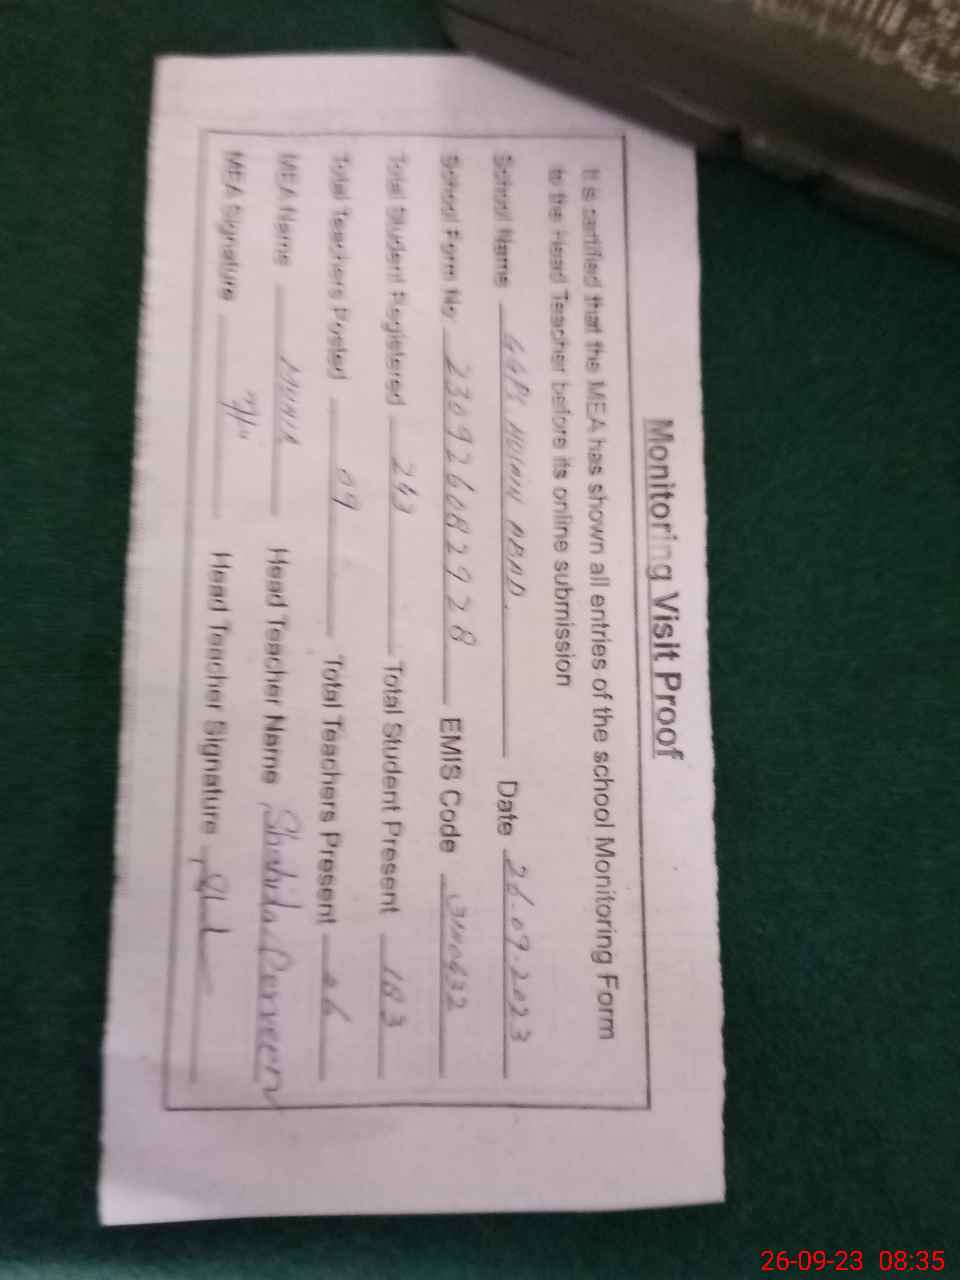 Monitoring Visit Proof
It is certified that the MEA has shown all entries of the school Monitoring Form
to the Head Teacher before its online submission
School Name GGPS ABAD. Date 26-09-2023
School Form No: 230926082928 EMIS Code
Total Student Registered 243 Total Student Present 183
Total Teachers Posted 09 Total Teachers Present 06
MEA Name Head Teacher Name Shahida Perveen
MEA Signature Head Teacher Signature
26-09-23 08:35